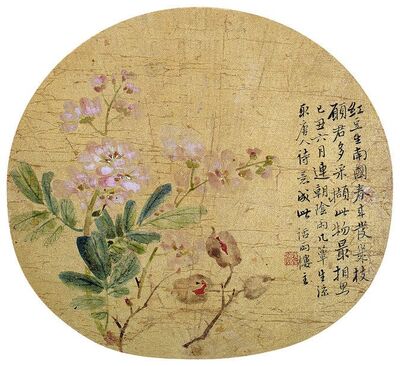 紅豆生南國春來發幾枝
願君多采擷此物最相思
己丑六月連朝陰雨几簟生涼
取唐人詩意成此 話雨樓主